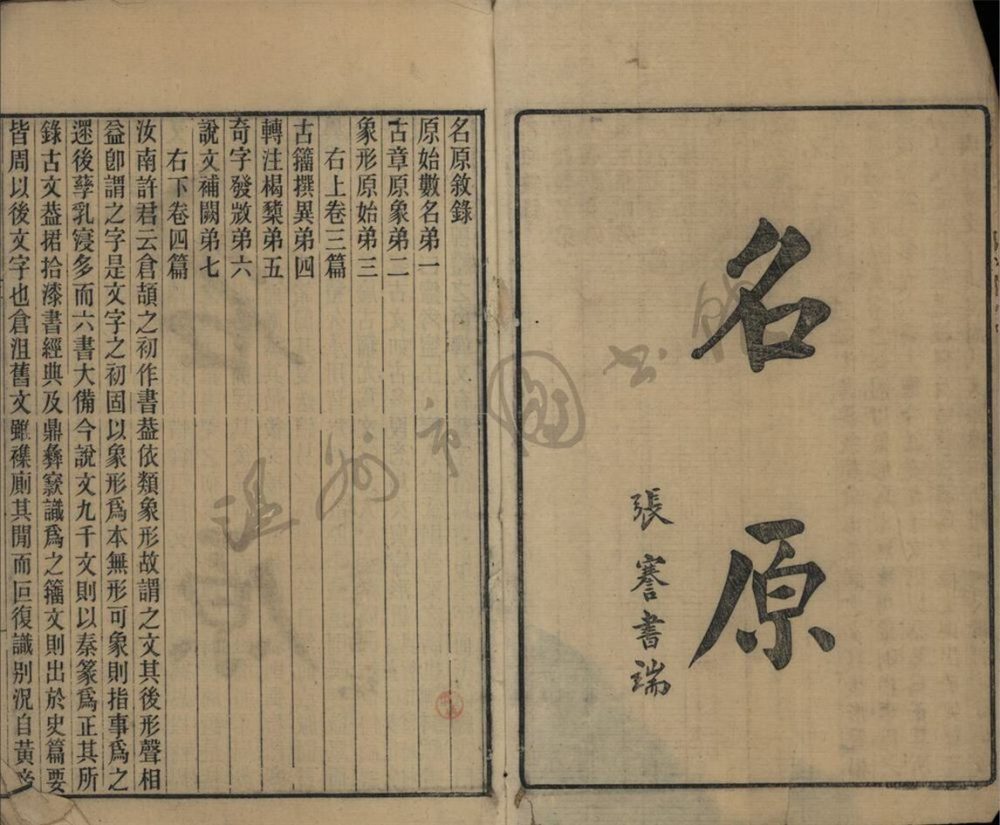 名原
張謇書耑
名原敘錄
原始數名弟一
古章原象弟二
象形原始弟三
右上卷三篇
古籀撰異弟四
轉注楬櫫弟五
奇字發微弟六
說文補闕弟七
右下卷四篇
汝南許君云倉頡之初作書葢依類象形故謂之文其後形聲相
益卽謂之字是文字之初固以象形爲本無形可象則指事爲之
遝後孳乳寖多而六書大備今說文九千文則以秦篆爲正其所
錄古文葢捃拾漆書經典及鼎彝窾識爲之籀文則出於史篇要
皆周以後文字也倉沮舊文雖襍廁其閒而叵復識別況自黃帝
溫州市圖書館